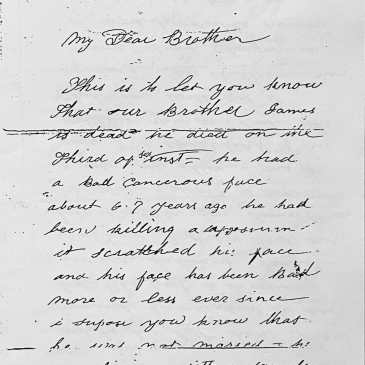 My Dear Brother
This is to let you know
that our Brother James
is dead he died on the
Third of the inst — he had
a Bad Cancerous face
about 6.7 years ago he had
been killing a opossum
it scratched his face
and his face has been Bad
more or less ever since
i supose you know that
he was not married — he